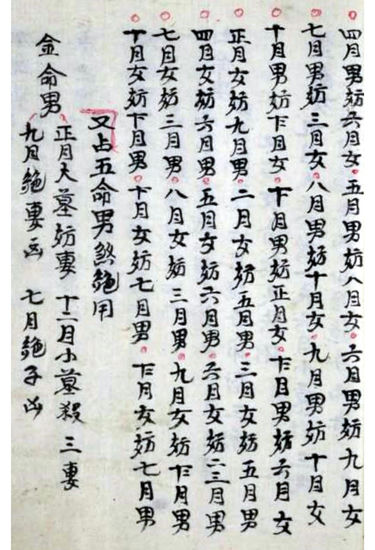 ○四月男妨六月女○五月男妨八月女○六月男妨九月女
○七月男妨三月女○八月男妨十月女○九月男妨十月女
○十月男妨十二月女○十一月男妨正月女○十二月男妨六月女
正月女妨九月男○二月女妨五月男○三月女妨五月男
○四月女妨六月男○五月女妨六月男○六月女妨三月男
○七月女妨三月男○八月女妨三月男○九月女妨十二月男
○十月女妨十一月男○十一月女妨七月男○十二月女妨七月男
又占五命男煞絶用
金命男
正月大墓妨妻 十二月小墓殺三妻
九月絶妻凶 七月絶子凶